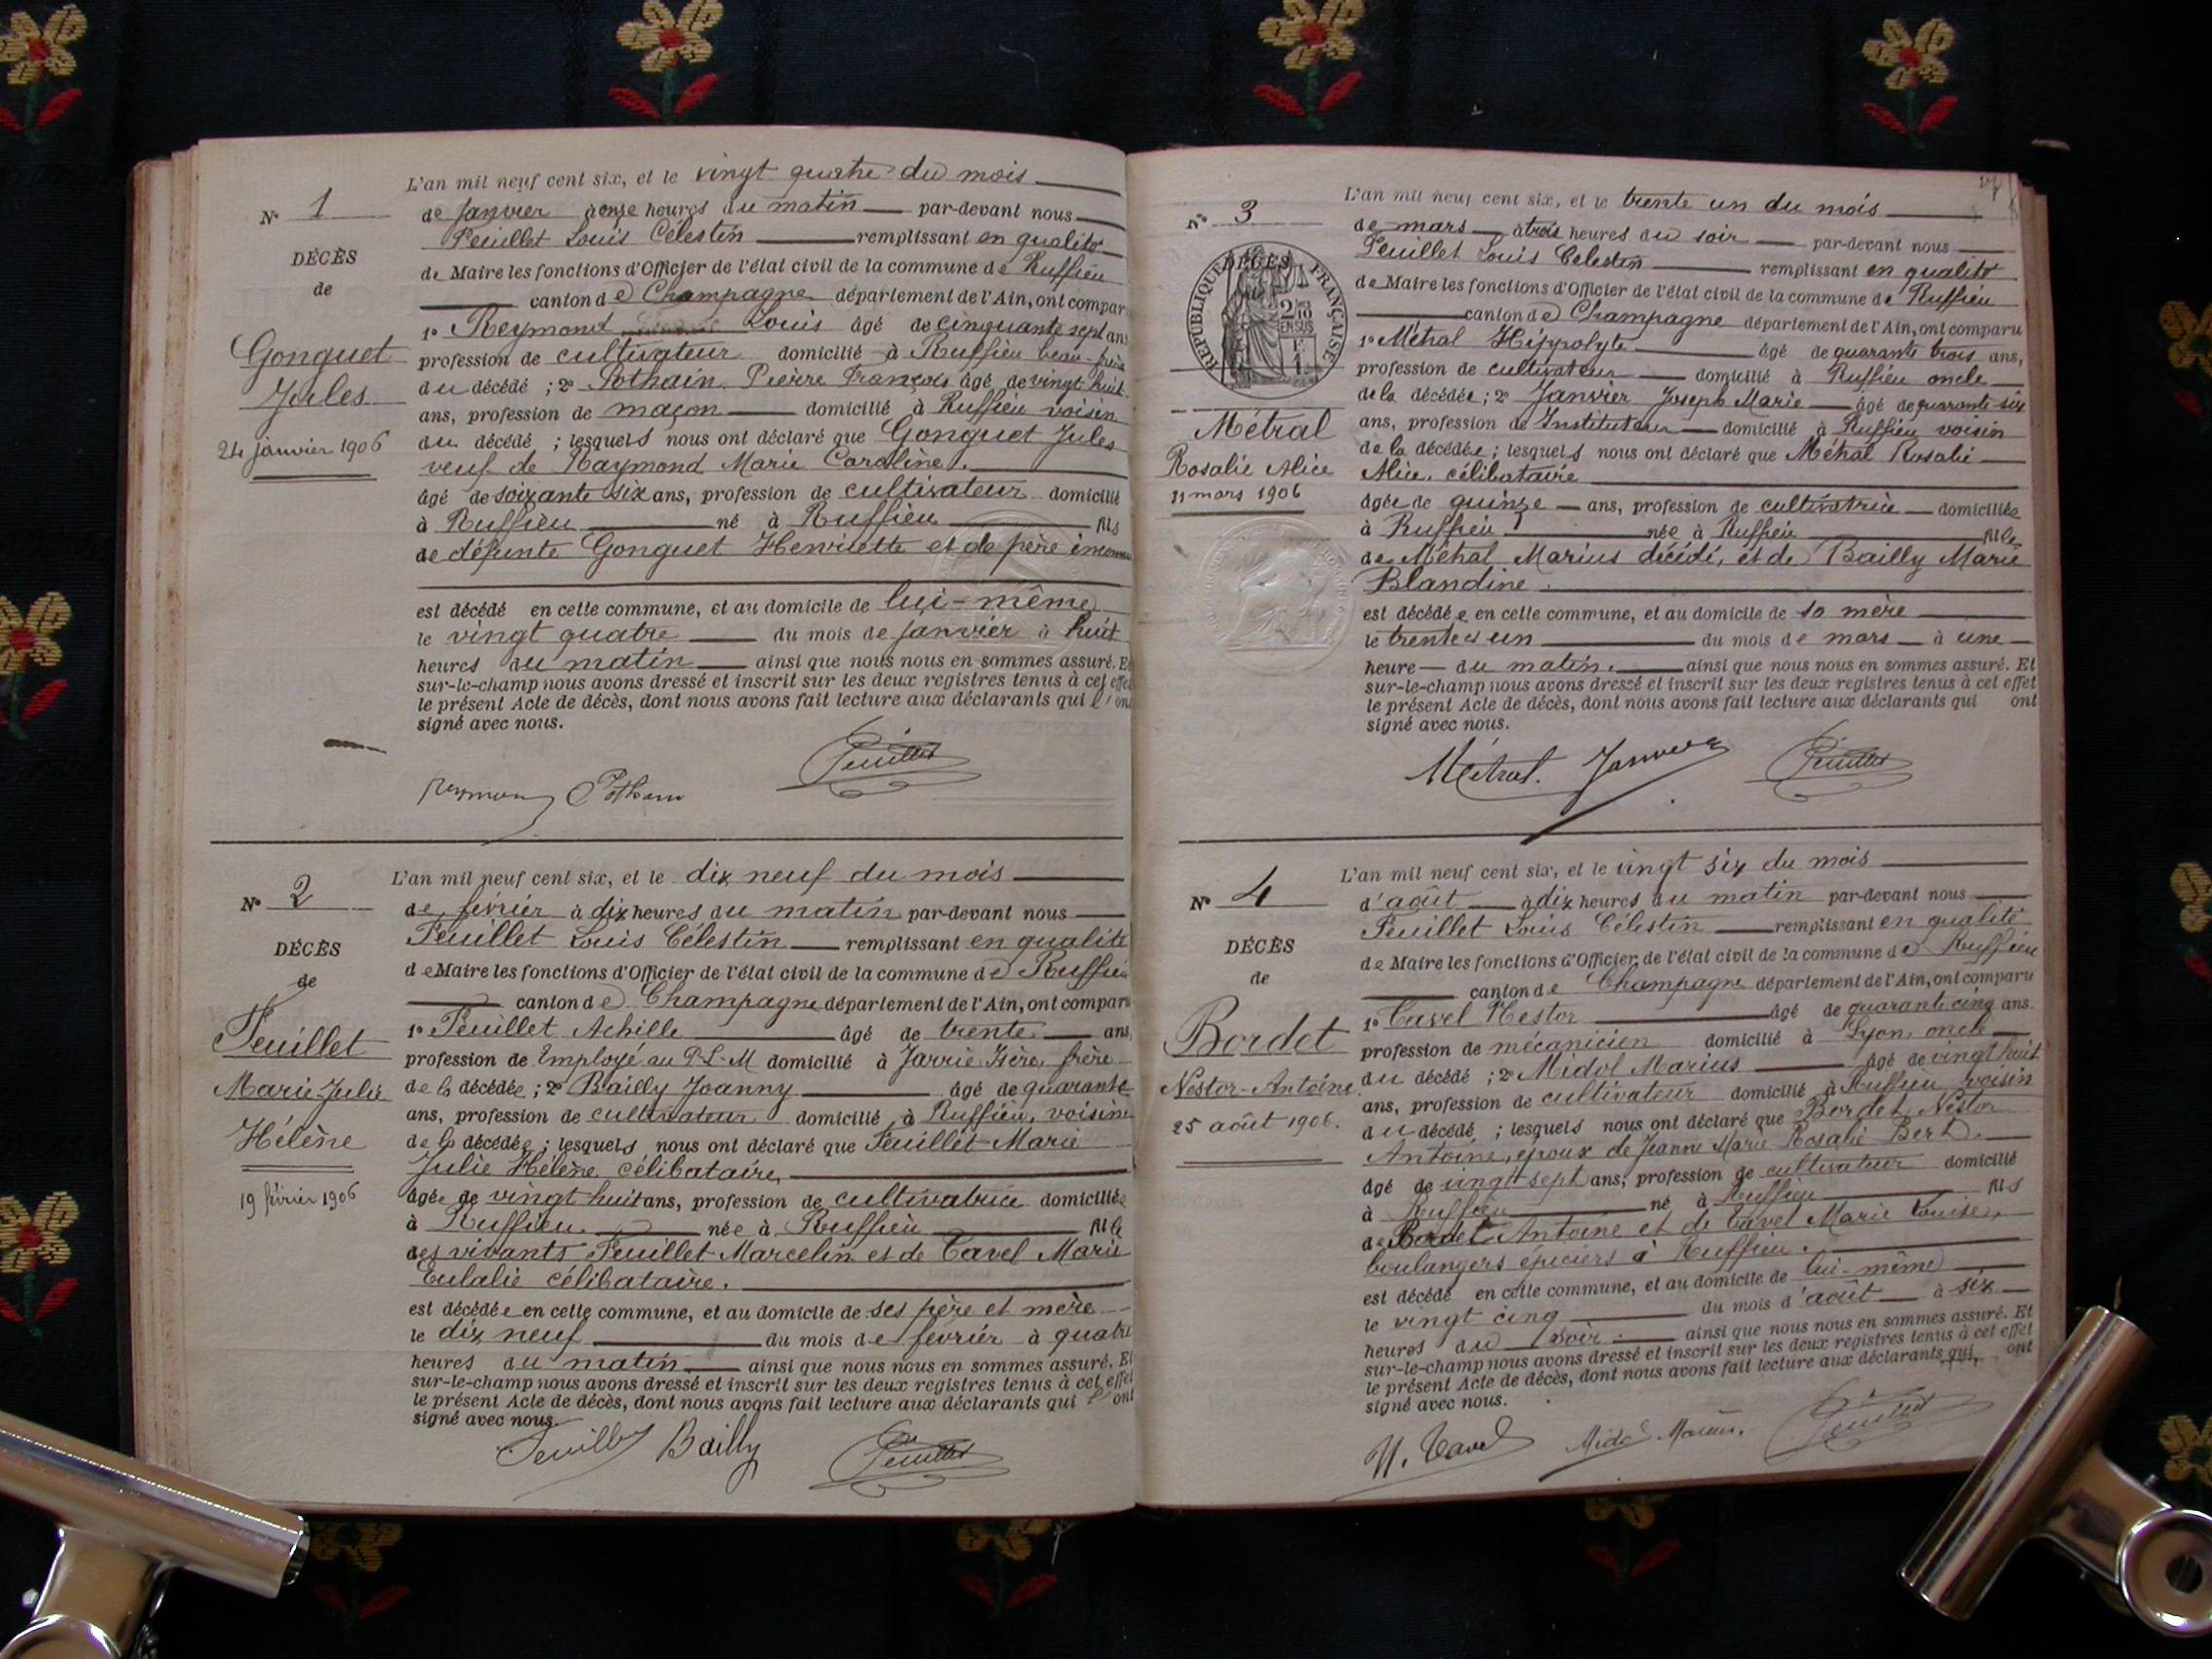 L'an mil neuf cent six, et le vingt quatre du mois
N° 1
de janvier à onze heures du matin par-devant nous
Feuillet Louis Célestin remplissant en qualité
DÉCÈS
de Maire les fonctions d'Officier de l'état civil de la commune de Ruffieu
de
canton de Champagne département de l'Ain, ont compar
1° Reymond Louis âgé de cinquante sept ans
Gonguet
profession de cultivateur domicilié à Ruffieu beau-frère
Jules
du décédé ; 2° Pothain Pierre François âgé de vingt huit
ans, profession de maçon domicilié à Ruffieu voisin
24 janvier 1906
du décédé ; lesquels nous ont déclaré que Gonguet Jules
veuf de Raymond Marie Caroline.
âgé de soixante six ans, profession de cultivateur domicilié
à Ruffieu né à Ruffieu fils
de défunte Gonguet Henriette et de père inconnu
est décédé en cette commune, et au domicile de lui-même
le vingt quatre du mois de janvier à huit
heures du matin ainsi que nous nous en sommes assuré. Et
sur-le-champ nous avons dressé et inscrit sur les deux registres tenus à cet effet
le présent Acte de décès, dont nous avons fait lecture aux déclarants qui l'ont
signé avec nous.
Reymond Pothain Feuillet
L'an mil neuf cent six, et le dix neuf du mois
N° 2
de février à dix heures du matin par-devant nous
Feuillet Louis Célestin remplissant en qualité
DÉCÈS
de Maire les fonctions d'Officier de l'état civil de la commune de Ruffieu
de
canton de Champagne département de l'Ain, ont comparu
1° Feuillet Achille âgé de trente ans
Feuillet
profession de Employé au P-L-M domicilié à Jarrie Isère, frère
Marie Julie
de la décédée ; 2° Bailly Joanny âgé de quarante
ans, profession de cultivateur domicilié à Ruffieu, voisin
Hélène
de la décédée ; lesquels nous ont déclaré que Feuillet Marie
Julie Hélène, célibataire,
19 février 1906
âgée de vingt huit ans, profession de cultivatrice domiciliée
à Ruffieu née à Ruffieu fille
des vivants Feuillet Marcelin et de Tavel Marie
Eulalie célibataire.
est décédée en cette commune, et au domicile de ses père et mère
le dix neuf du mois de février à quatre
heures du matin ainsi que nous nous en sommes assuré. Et
sur-le-champ nous avons dressé et inscrit sur les deux registres tenus à cet effet
le présent Acte de décès, dont nous avons fait lecture aux déclarants qui l'ont
signé avec nous.
Feuillet Bailly Feuillet
L'an mil neuf cent six, et le trente un du mois
N° 3
de mars à trois heures du soir par-devant nous
Feuillet Louis Célestin remplissant en qualité
DÉCÈS
RÉPUBLIQUE FRANÇAISE
2/10 EN SUS
de Maire les fonctions d'Officier de l'état civil de la commune de Ruffieu
canton de Champagne département de l'Ain, ont comparu
1° Métral Hippolyte âgé de quarante trois ans,
profession de cultivateur domicilié à Ruffieu oncle
de la décédée ; 2° Janvier Joseph Marie âgé de quarante six
Métral
ans, profession de Instituteur domicilié à Ruffieu voisin
Rosalie Alice
de la décédée ; lesquels nous ont déclaré que Métral Rosalie
Alice, célibataire
31 mars 1906
âgée de quinze ans, profession de cultivatrice domiciliée
à Ruffieu née à Ruffieu fille
de Métral Marius décédé, et de Bailly Marie
Blandine.
est décédée en cette commune, et au domicile de sa mère
le trente et un du mois de mars à une
heure du matin. ainsi que nous nous en sommes assuré. Et
sur-le-champ nous avons dressé et inscrit sur les deux registres tenus à cet effet
le présent Acte de décès, dont nous avons fait lecture aux déclarants qui ont
signé avec nous.
Métral. Janvier Feuillet
L'an mil neuf cent six, et le vingt six du mois
N° 4
d'août à dix heures du matin par-devant nous
Feuillet Louis Célestin remplissant en qualité
DÉCÈS
de Maire les fonctions d'Officier de l'état civil de la commune de Ruffieu
de
canton de Champagne département de l'Ain, ont comparu
1° Tavel Nestor âgé de quarante cinq ans.
Bordet
profession de mécanicien domicilié à Lyon, oncle
Nestor-Antoine
du décédé ; 2° Midol Marius âgé de vingt huit
ans, profession de cultivateur domicilié à Ruffieu voisin
25 août 1906.
du décédé ; lesquels nous ont déclaré que Bordet Nestor
Antoine, époux de Jeanne Marie Rosalie Bert.
âgé de vingt sept ans, profession de cultivateur domicilié
à Ruffieu né à Ruffieu fils
de Bordet Antoine et de Tavel Marie Louise,
boulangers épiciers à Ruffieu.
est décédé en cette commune, et au domicile de lui-même
le vingt cinq du mois d'août à six
heures du soir. ainsi que nous nous en sommes assuré. Et
sur-le-champ nous avons dressé et inscrit sur les deux registres tenus à cet effet
le présent Acte de décès, dont nous avons fait lecture aux déclarants qui ont
signé avec nous.
N. Tavel Midol Marius. Feuillet